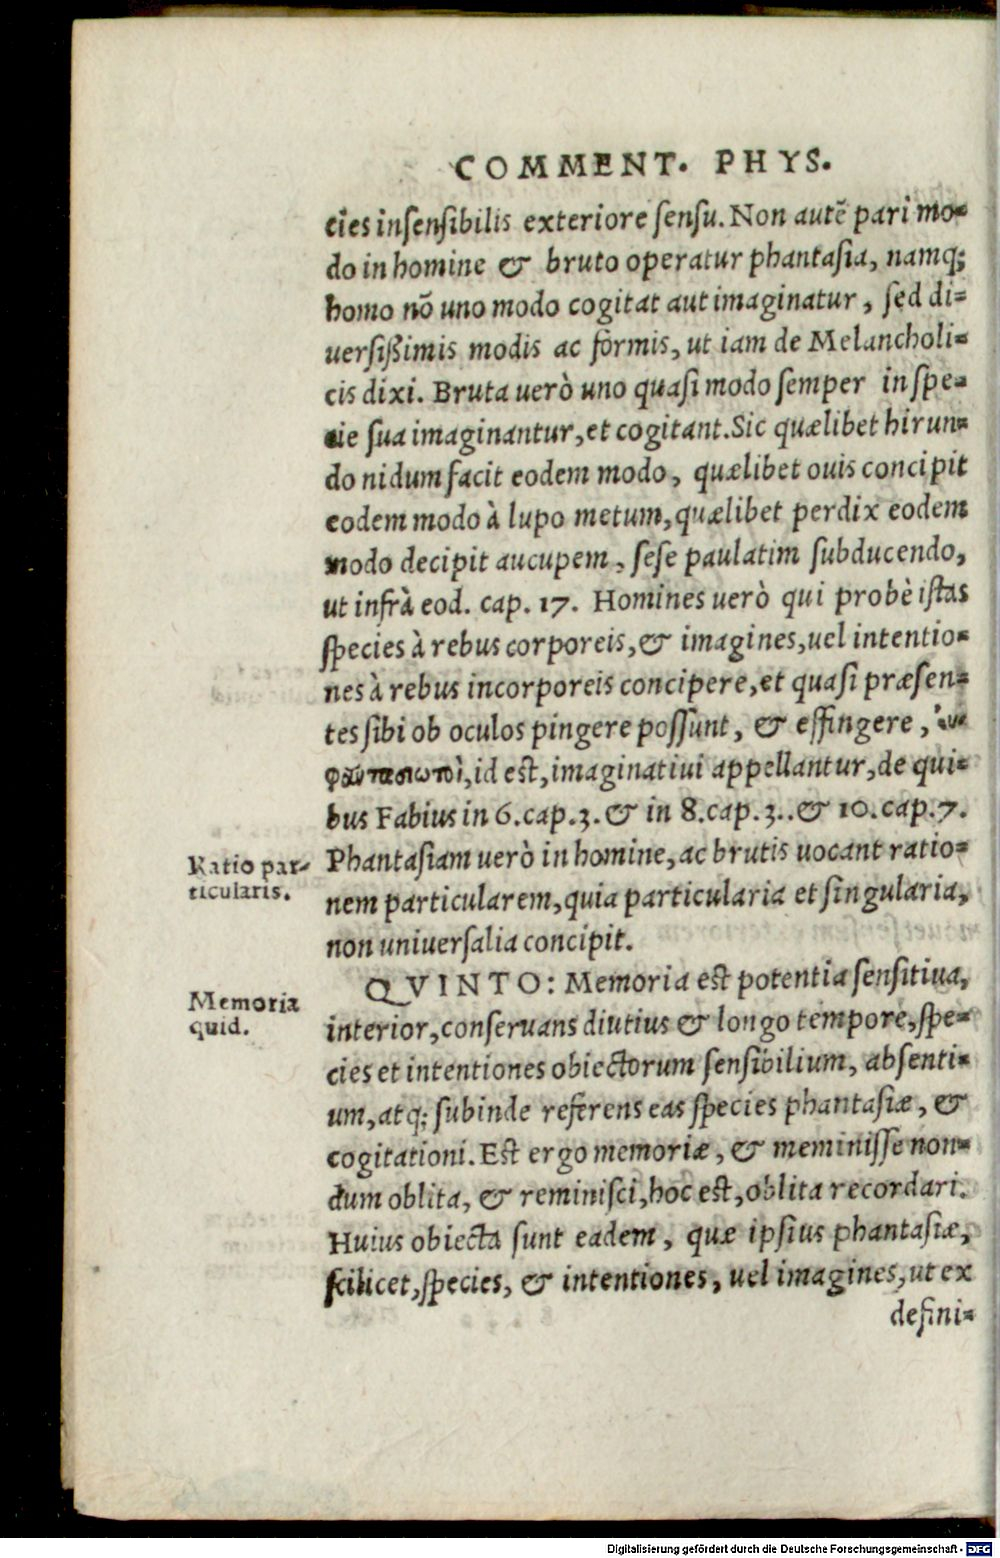 COMMENT. PHYS.
cies insensibilis exteriore sensu. Non autē pari mo-
do in homine & bruto operatur phantasia, namq;
homo nō uno modo cogitat aut imaginatur, sed di-
uersißimis modis ac formis, ut iam de Melancholi-
cis dixi. Bruta uerò uno quasi modo semper in spe-
cie sua imaginantur, et cogitant. Sic quælibet hirun-
do nidum facit eodem modo, quælibet ouis concipit
eodem modo à lupo metum, quælibet perdix eodem
modo decipit aucupem, sese paulatim subducendo,
ut infrà eod. cap. 17. Homines uerò qui probè istas
species à rebus corporeis, & imagines, uel intentio-
nes à rebus incorporeis concipere, et quasi præsen-
tes sibi ob oculos pingere possunt, & effingere, ἐυ-
φαντασιωτοὶ, id est, imaginatiui appellantur, de qui-
bus Fabius in 6. cap. 3. & in 8. cap. 3.. & 10. cap. 7.
Ratio par-
ticularis.
Phantasiam uerò in homine, ac brutis uocant ratio-
nem particularem, quia particularia et singularia,
non uniuersalia concipit.
Memoria
quid.
QVINTO: Memoria est potentia sensitiua,
interior, conseruans diutius & longo tempore, spe-
cies et intentiones obiectorum sensibilium, absenti-
um, atq; subinde referens eas species phantasiæ, &
cogitationi. Est ergo memoriæ, & meminisse non-
dum oblita, & reminisci, hoc est, oblita recordari.
Huius obiecta sunt eadem, quæ ipsius phantasiæ,
scilicet, species, & intentiones, uel imagines, ut ex
defini-
Digitalisierung gefördert durch die Deutsche Forschungsgemeinschaft - DFG